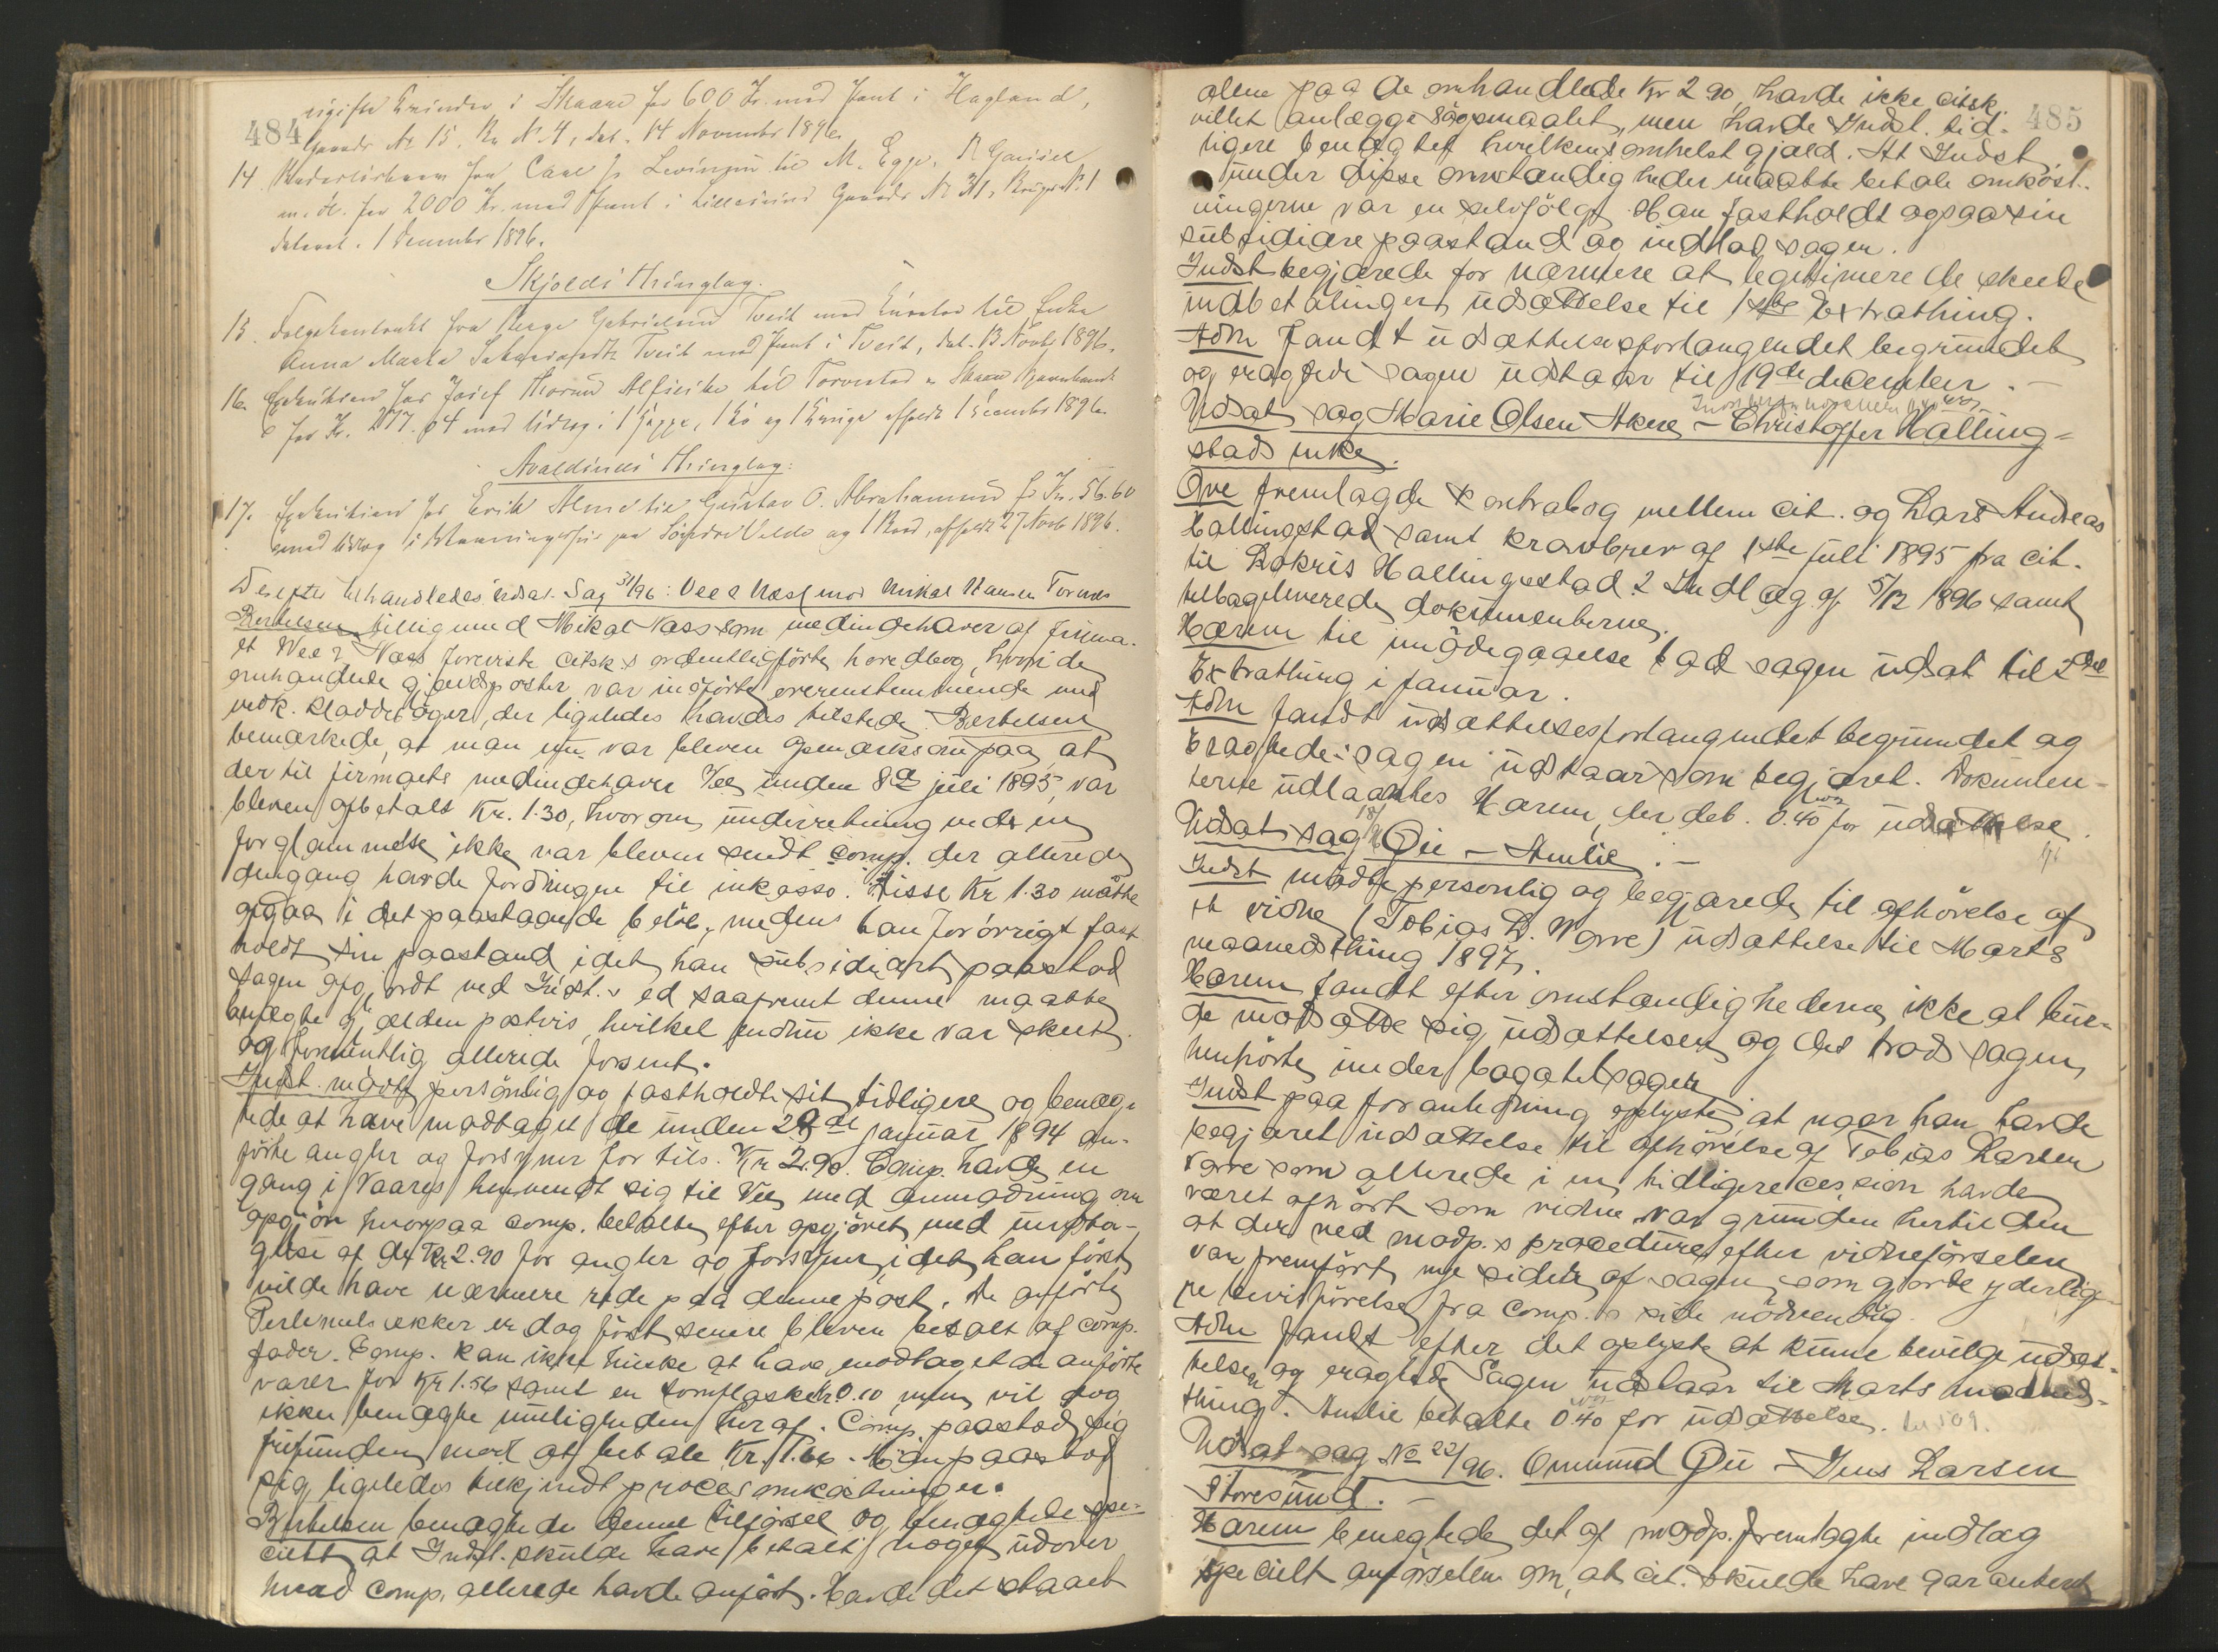 484
ugifte Kvinder i Skaare for 600 Kr. med Pant i Hagland,
Gaards No 15, Br. No 4, dat. 14 November 1896.
14. fra Carl J. Levinsen til M. Egge,
m. fl. for 2000 Kr. med Pant i Lillesund Gaards No Brugs No 1
dateret 1 December 1896.
Skjolds Thinglag.
15. Følgekontrakt fra Gabrielsen Tveit med Curator til Enke
Anna Marta Tveit med Pant i Tveit, dat. 13 Novbr 1896.
16. Exekution for Josef til Torvestad & Skaare Sparebank
for Kr. 217.64 med Udlæg i 1 Jagge, 1 Ko og 1 Kvige afholdt 1 December 1896.
Avaldsnes Thinglag:
17. Exekution for Erik Alme til Gustav O. Abrahamsen for Kr. 56.60
med Udlæg i Vaaningshus paa Søndre Velde og 1 Baad, afholdt 27 Novb 1896.
Derefter behandledes udsat Sag 31/96: Vee & Næss mod Mikal Hansen Tornes
Bertelsen tilligemed Mikal Næss som medindehaver af firma-
et Vee & Næss foreviste citsk.s ordentligførte hovedbog, hvori de
omhandlede gjældsposter var indførte overenstemmende med
vedk. kladdebøger, der ligeledes havdes tilstede. Bertelsen
bemærkede, at man nu var bleven opmærksom paa, at
der til firmaets medindehaver Vee under 8de juli 1895, var
bleven afbetalt Kr. 1.30, hvorom underretning ved en
forglemmelse ikke var bleven sendt comp. der allerede
dengang havde fordringen til inkasso. Disse Kr 1.30 maatte
afgaa i det paastaaende beløb, medens han forøvrigt fast-
holdt sin paastand idet han subsidiært paastod
sagen afgjordt ved Indst.s ed saafremt denne maatte
benægte gjælden postvis, hvilket endnu ikke var skeet
og formentlig allerede forsent.
Indst. mødte personlig og fastholdt sit tidligere og benæg-
tede at have modtaget de under 29de januar 1894 an-
førte angler og forsyner for tils. Kr 2.90. Comp. havde en
gang i Vaares henvendt sig til Vee med anmodning om
opgjør hvorpaa comp. betalte efter opgjøret med undta-
gelse af de Kr 2.90 for angler og forsyner, idet han først
vilde have nærmere rede paa denne post. De anførte
er dog først senere bleven betalt af comp.
fader. Comp. kan ikke huske at have modtaget de anførte
varer for Kr 1.56 samt en tomflaske Kr 0.10 men vil dog
ikke benægte muligheden heraf. Comp. paastod sig
frifunden mod at betale Kr. 1.66. Han paastod
sig ligeledes tilkjendt procesomkostninger.
Bertelsen benægtede denne tilførsel og benægtede spe-
cielt at Indst. skulde have betalt noget udover
hvad comp. allerede havde anført. Havde det staaet
485
alene paa de omhandlede Kr 2.90 havde ikke citsk.
villet anlægge søgsmaalet, men havde Indst. tid-
ligere benægtet hvilkensomhelst gjæld. At Indst.
under disse omstændigheder maatte betale omkost-
ningerne var en selvfølge. Han fastholdt ogsaa sin
subsidiære paastand og indlod sagen.
Indst. begjærede for nærmere at legitimere de skeede
indbetalinger udsættelse til 1ste Extrathing.
Adm fandt udsættelsesforlangendet begrundet
og eragtede: sagen udstaar til 19de december.
Udsat sag Marie Olsen Akere - Christoffer Halling-
stads enke.
Øve fremlagde kontrabog mellem cit. og Lars Andreas
Hallingstad samt kravbrev af 1ste juli 1895 fra cit.
til Bokris Hallingstad. 2 Indlæg af 5/12 1896 samt
tilbageleverede dokumenterne.
Harum til imødegaaelse bad sagen udsat til 2det
Extrathing i januar.
Adm fandt udsættelsesforlangendet begrundet og
eragtede: sagen udstaar som begjæret. Dokumen-
terne udlaantes Harum, der bet. 0.40 for udsættelse.
Udsat sag 18/96 Øie - Amlie.
Indst mødte personlig og begjærede til afhørelse af
et vidne (Tobias L. Vorre) udsættelse til Marts
maanedsthing 1897.
Harum fandt efter omstændighederne ikke at kun-
de modsætte sig udsættelsen og det trods sagen
henhørte under bagatelsager.
Indst paa foranledning oplyste, at naar han havde
begjæret udsættelse til afhørelse af Tobias Larsen
Vorre som allerede i en tidligere cession havde
været afhørt som vidne, var grunden hertil den
at der ved modp.s procedure efter vidneførselen
var fremført nye sider af sagen, som gjorde yderlig-
re bevisførelse fra comp.s side nødvendig.
Adm fandt efter det oplyste at kunne bevilge udsæt-
telse og eragtede: Sagen udstaar til Marts maaneds-
thing. Amlie betalte 0.40 for udsættelse.
Udsat sag No 22/96. Omund Øie - Jens Larsen
Storesund.
Harum benegtede det af modp. fremlagte indlæg
specielt anførselen om, at cit. skulde have garanteret